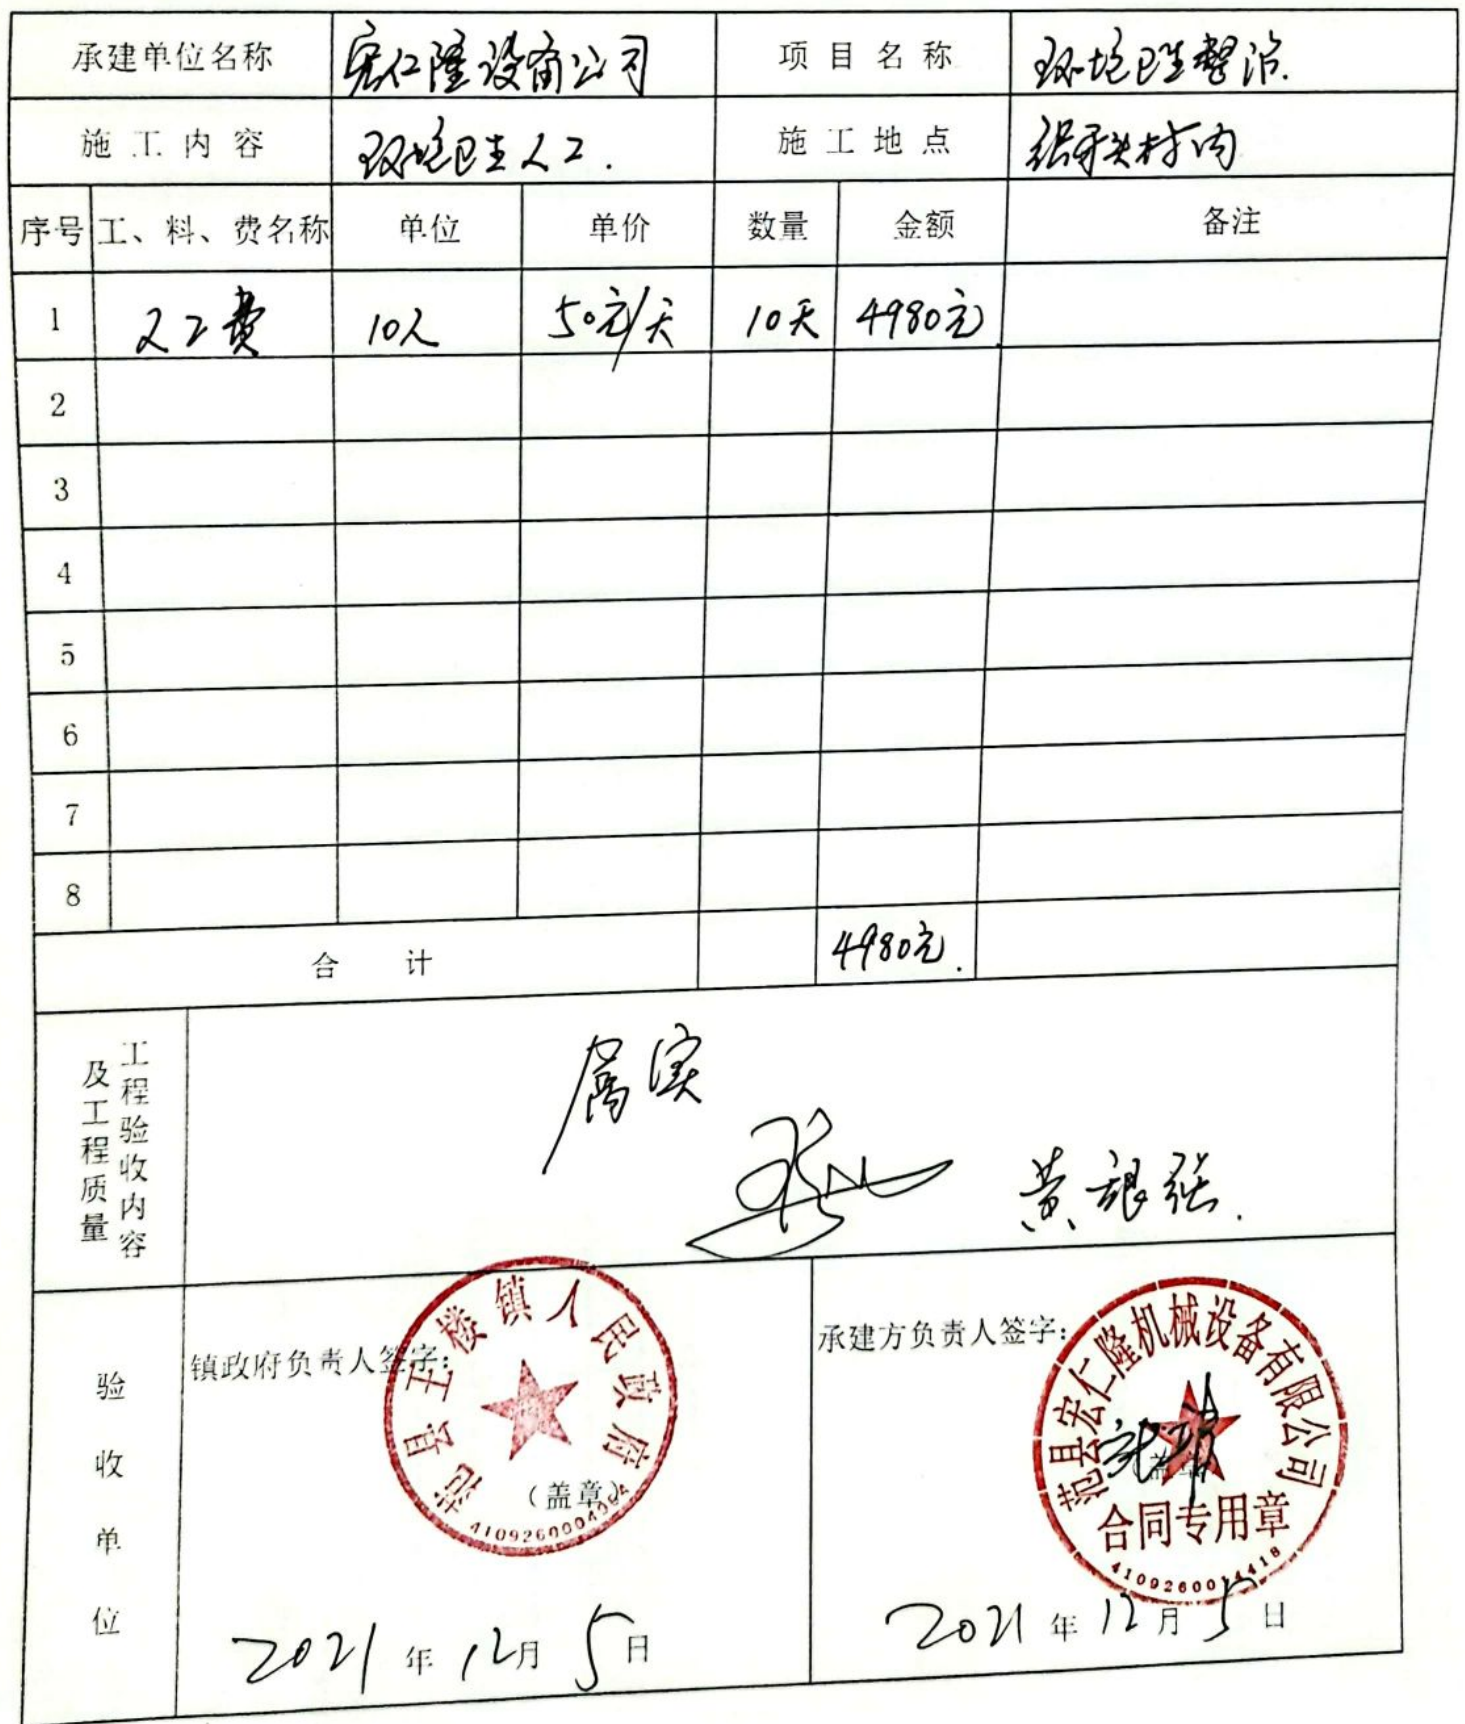 承建单位名称 宏仁隆设备公司 项目名称 环境卫生整治.
施工内容 环境卫生人工. 施工地点 村内
序号 工、料、费名称 单位 单价 数量 金额 备注
1 人工费 10人 50元/天 10天 4980元.
2
3
4
5
6
7
8
合计 4980元.
工程验收内容
及工程质量
属实
黄银强.
验收单位
镇政府负责人签字:
范县王楼镇人民政府
(盖章)
2021年12月5日
承建方负责人签字:
范县宏仁隆机械设备有限公司
(盖章)
合同专用章
2021年12月5日